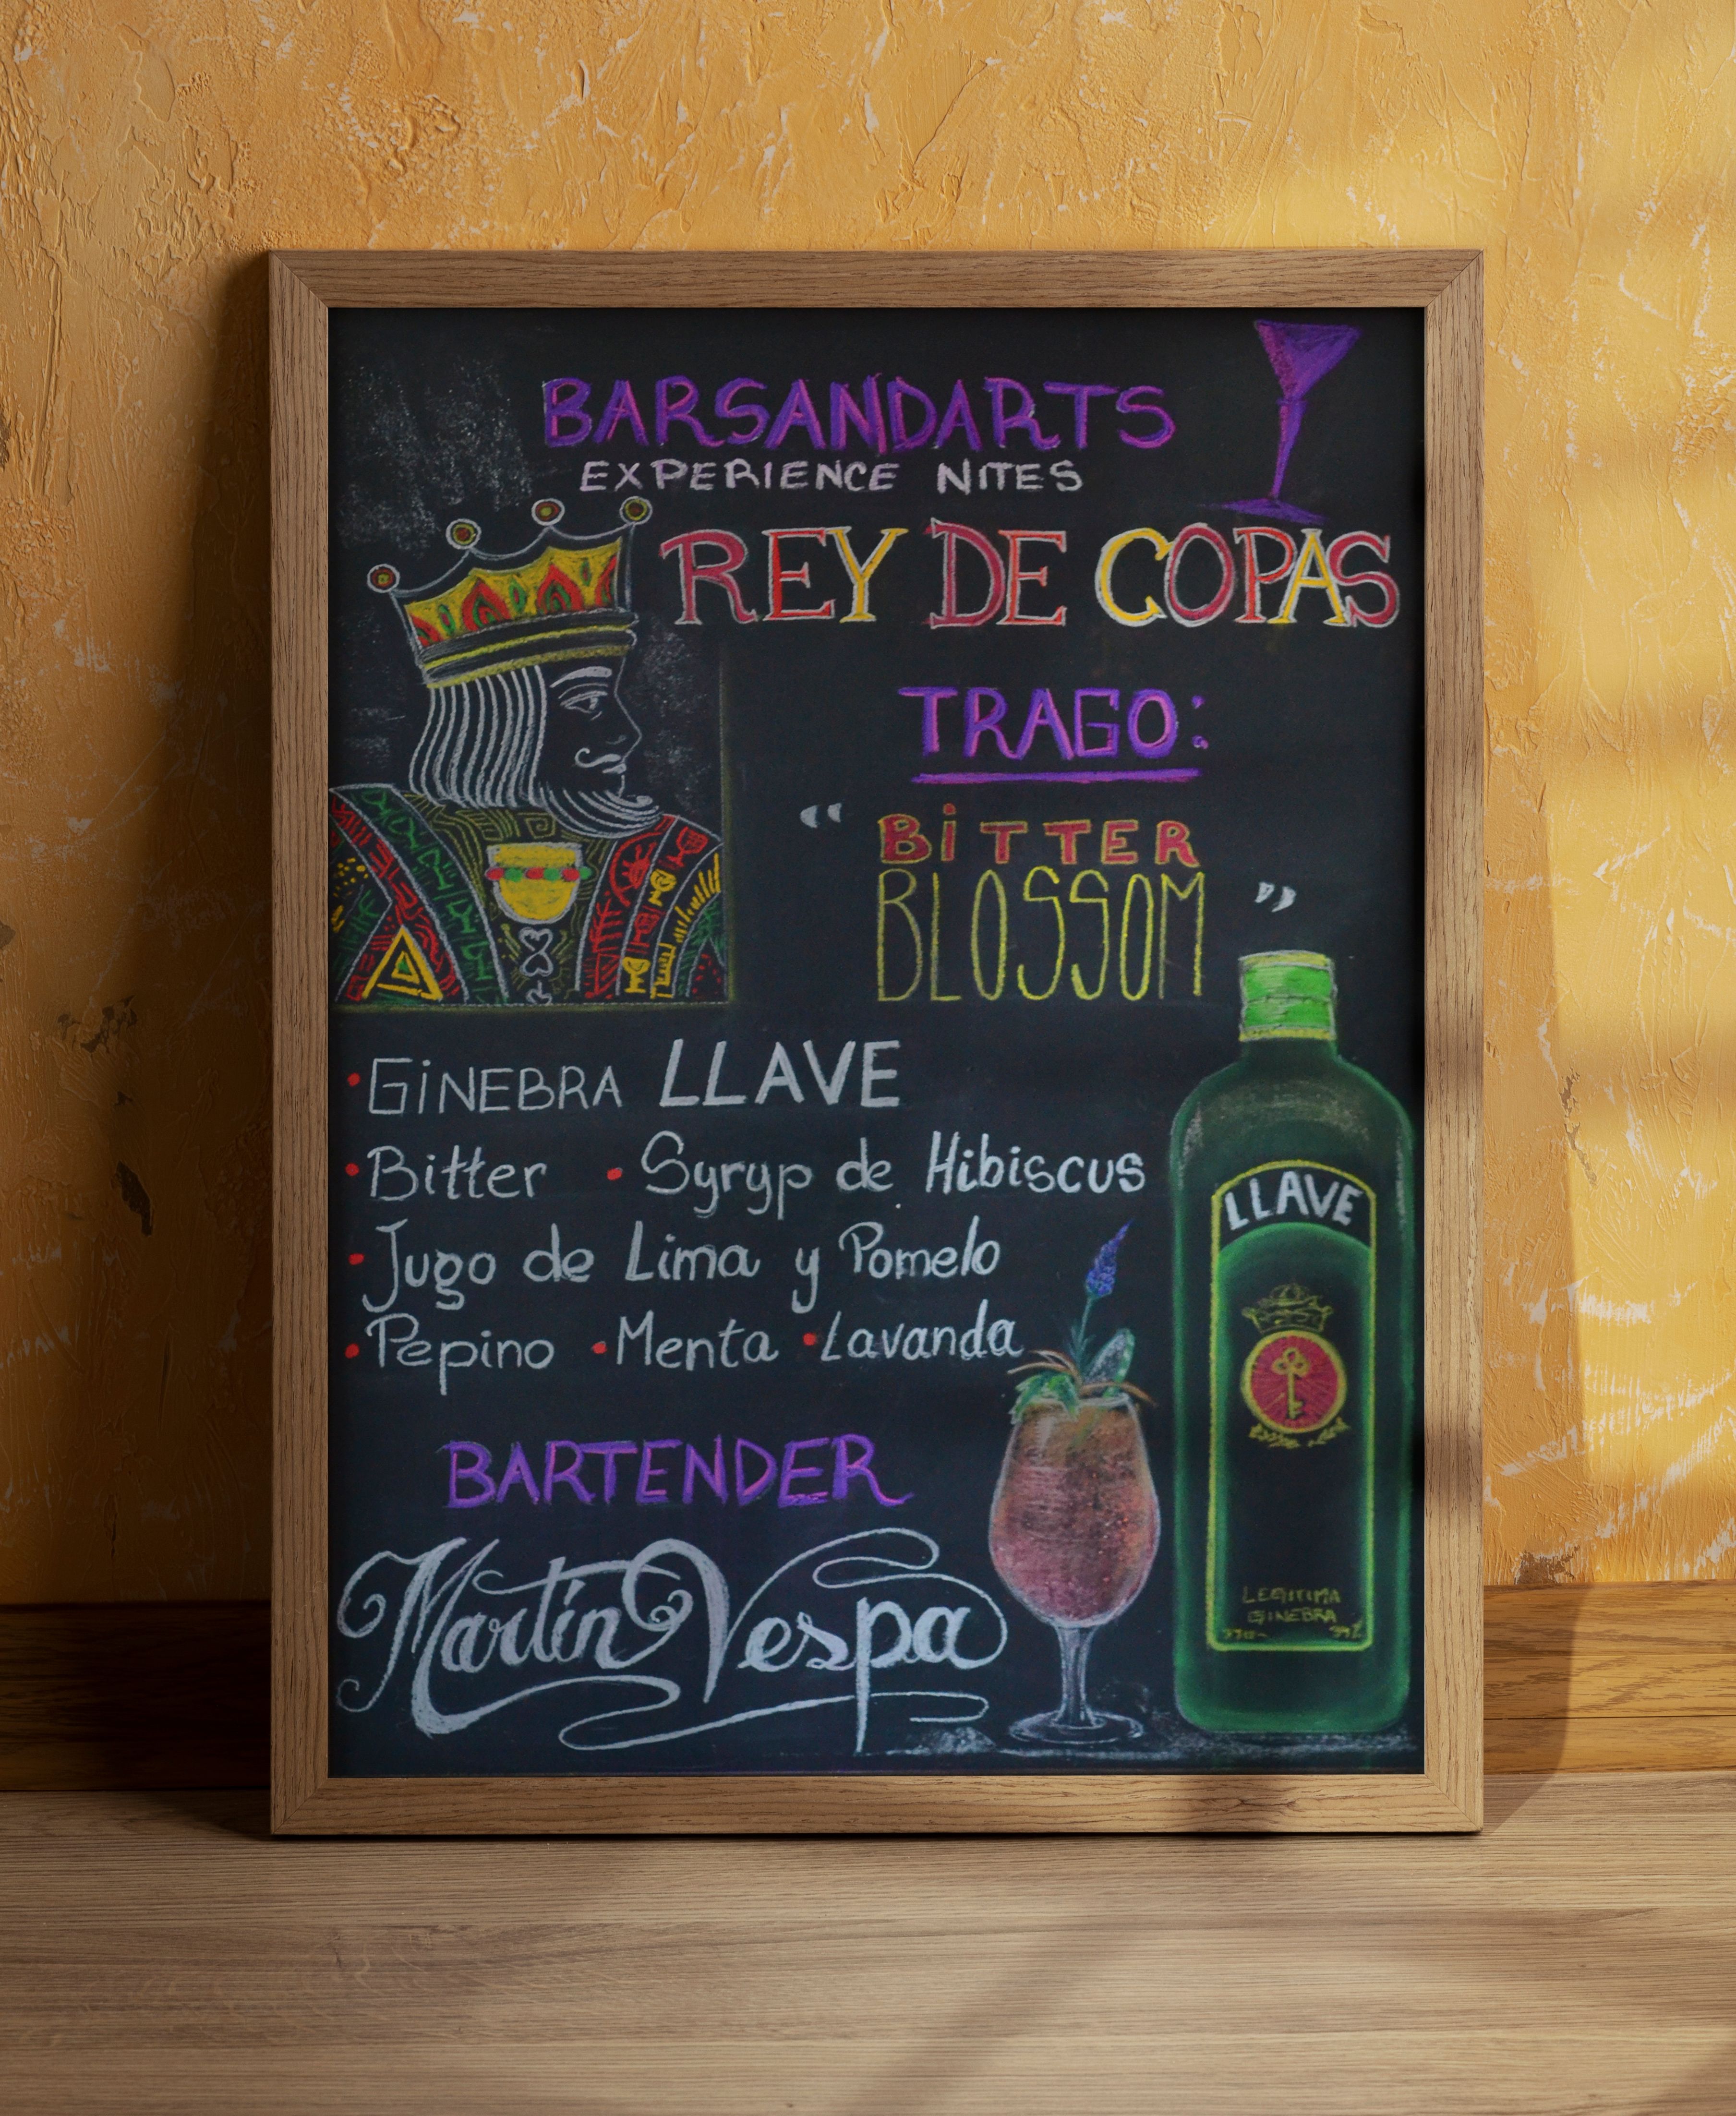 BARSANDARTS
EXPERIENCE NITES
REY DE COPAS
TRAGO:
“BiTTER
BLOSSOM”
•GiNEBRA LLAVE
•Bitter •Syryp de Hibiscus
•Jugo de Lima y Pomelo
•Pepino •Menta •Lavanda
BARTENDER
Martín Vespa
LLAVE
LEGITIMA
GINEBRA